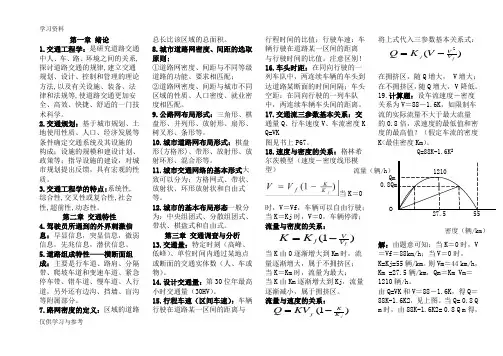 学习资料
第一章 绪论
1.交通工程学：是研究道路交通
中人、车、路、环境之间的关系，
探讨道路交通的规律，建立交通
规划、设计、控制和管理的理论
方法，以及有关设施、装备、法
律和法规等，使道路交通更加安
全、高效、快捷、舒适的一门技
术科学。
2.交通规划：基于城市规划、土
地使用性质、人口、经济发展等
条件确定交通系统及其设施的
构成；设施的规模和建设计划、
政策等；指导设施的建设；对城
市规划提出反馈，具有宏观的性
质。
3.交通工程学的特点：系统性，
综合性，交叉性或复合性，社会
性，超前性，动态性。
第二章 交通特性
4.驾驶员所遇到的外界刺激信
息：早显信息，突显信息，微弱
信息，先兆信息，潜伏信息。
5.道路组成特性——横断面组
成：主要是行车道、路肩、分隔
带、爬坡车道和变速车道、紧急
停车带、错车道、慢车道、人行
道，另外还有边沟、挡墙、盲沟
等附属部分。
7.路网密度的定义：区域的道路
总长比该区域的总面积。
8.城市道路网密度、间距的选取
原则：
①道路网密度、间距与不同等级
道路的功能、要求相匹配；
②道路网密度、间距与城市不同
区域的性质、人口密度、就业密
度相匹配。
9.公路网布局形式：三角形、棋
盘形、并列形、放射形、扇形、
树叉形、条形等。
10.城市道路网布局形式：棋盘
形(方格形)、带形、放射形、放
射环形、混合形等。
11.城市交通网络的基本形式大
致可以分为：方格网式、带状、
放射状、环形放射状和自由式
等。
12.城市的基本布局形态一般分
为：中央组团式、分散组团式、
带状、棋盘式和自由式。
第三章 交通调查与分析
13.交通量：特定时刻（高峰、
低峰）、单位时间内通过某地点
或断面的交通实体数（人、车或
物）。
14.设计交通量：第 30 位年最高
小时交通量(30HV)。
15.行程车速（区间车速）：车辆
行驶在道路某一区间的距离与
行程时间的比值；行驶车速：车
辆行驶在道路某一区间的距离
与行驶时间的比值。注意区别！
16.车头时距：在同向行驶的一
列车队中，两连续车辆的车头到
达道路某断面的时间间隔；车头
空距：在同向行驶的一列车队
中，两连续车辆车头间的距离。
17.交通流三参数基本关系：交
通量 Q、行车速度 V、车流密度 K
Q=VK
图见书上 P67。
18.速度与密度的关系：格林希
尔茨模型（速度—密度线形模
型）
当 K＝0
时，V＝Vf，车辆可以自由行驶；
当 K＝Kj 时，V＝0，车辆停滞；
流量与密度的关系：
当 K 由 0 逐渐增大到 Km 时，流
量逐渐增大，属于不拥挤区；
当 K＝Km 时，流量为最大；
当 K 由 Km 逐渐增大到 Kj，流量
逐渐减小，属于拥挤区。
流量与速度的关系：
将上式代入三参数基本关系式：
在拥挤区，随 Q 增大， V 增大；
在不拥挤区，随 Q 增大，V 降低。
19.计算题：设车流速度—密度
关系为 V＝88－1.6K，如限制车
流的实际流量不大于最大流量
的 0.8 倍，求速度的最低值和密
度的最高值？（假定车流的密度
K<最佳密度 Km）。
Q=88K-1.6K²
流量（辆/h）
1210
Qm
0.8Qm
0
27.5
55
密度（辆/km）
解：由题意可知：当 K＝0 时，V
＝Vf＝88km/h；当 V＝0 时，
K=Kj=55 辆/km，则 Vm＝44 km/h，
Km =27.5 辆/km，Qm＝Km Vm＝
1210 辆/h。
由 Q=VK 和 V＝88－1.6K，得 Q＝
88K-1.6K2，见上图。当 Q= 0.8 Q
m 时，由 88K-1.6K2= 0.8 Q m 得，
仅供学习与参考